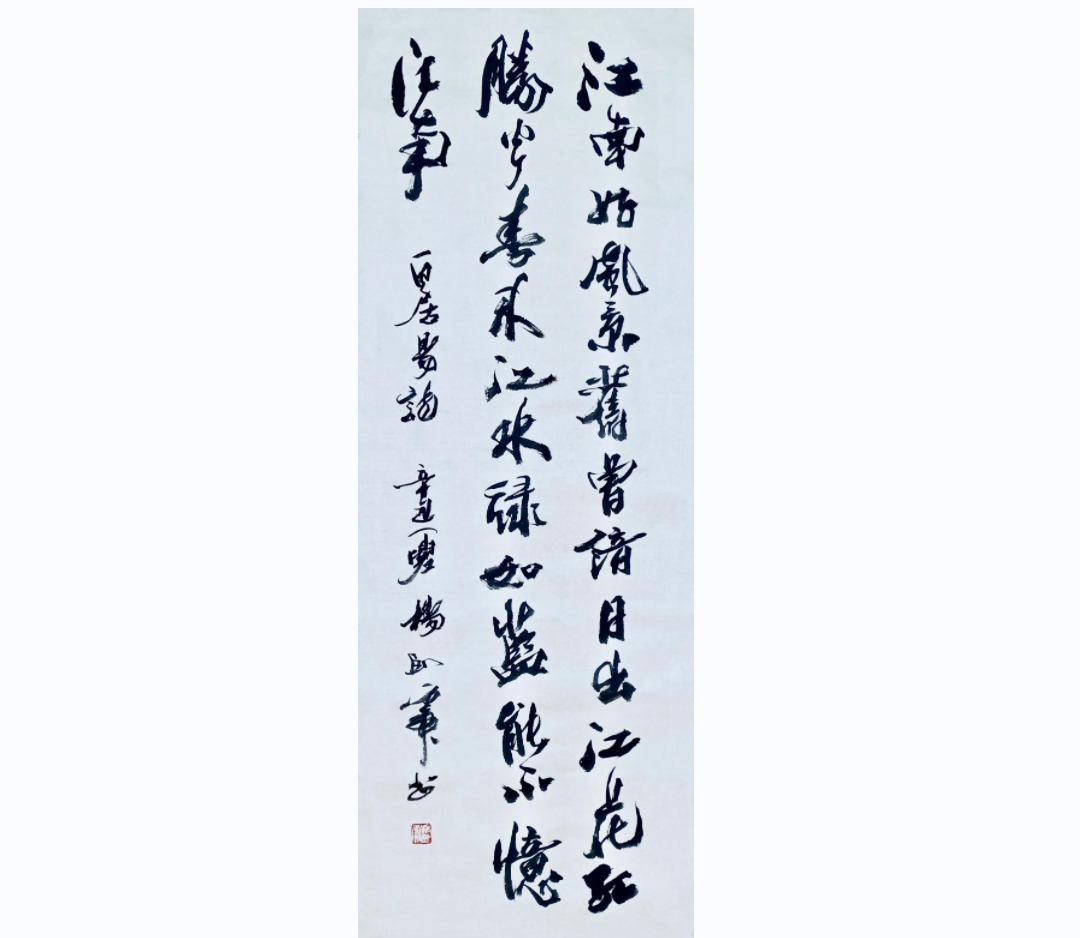 江南好風景舊曾諳日出江花紅
勝火春來江水綠如藍能不憶
江南 白居易 楊 書